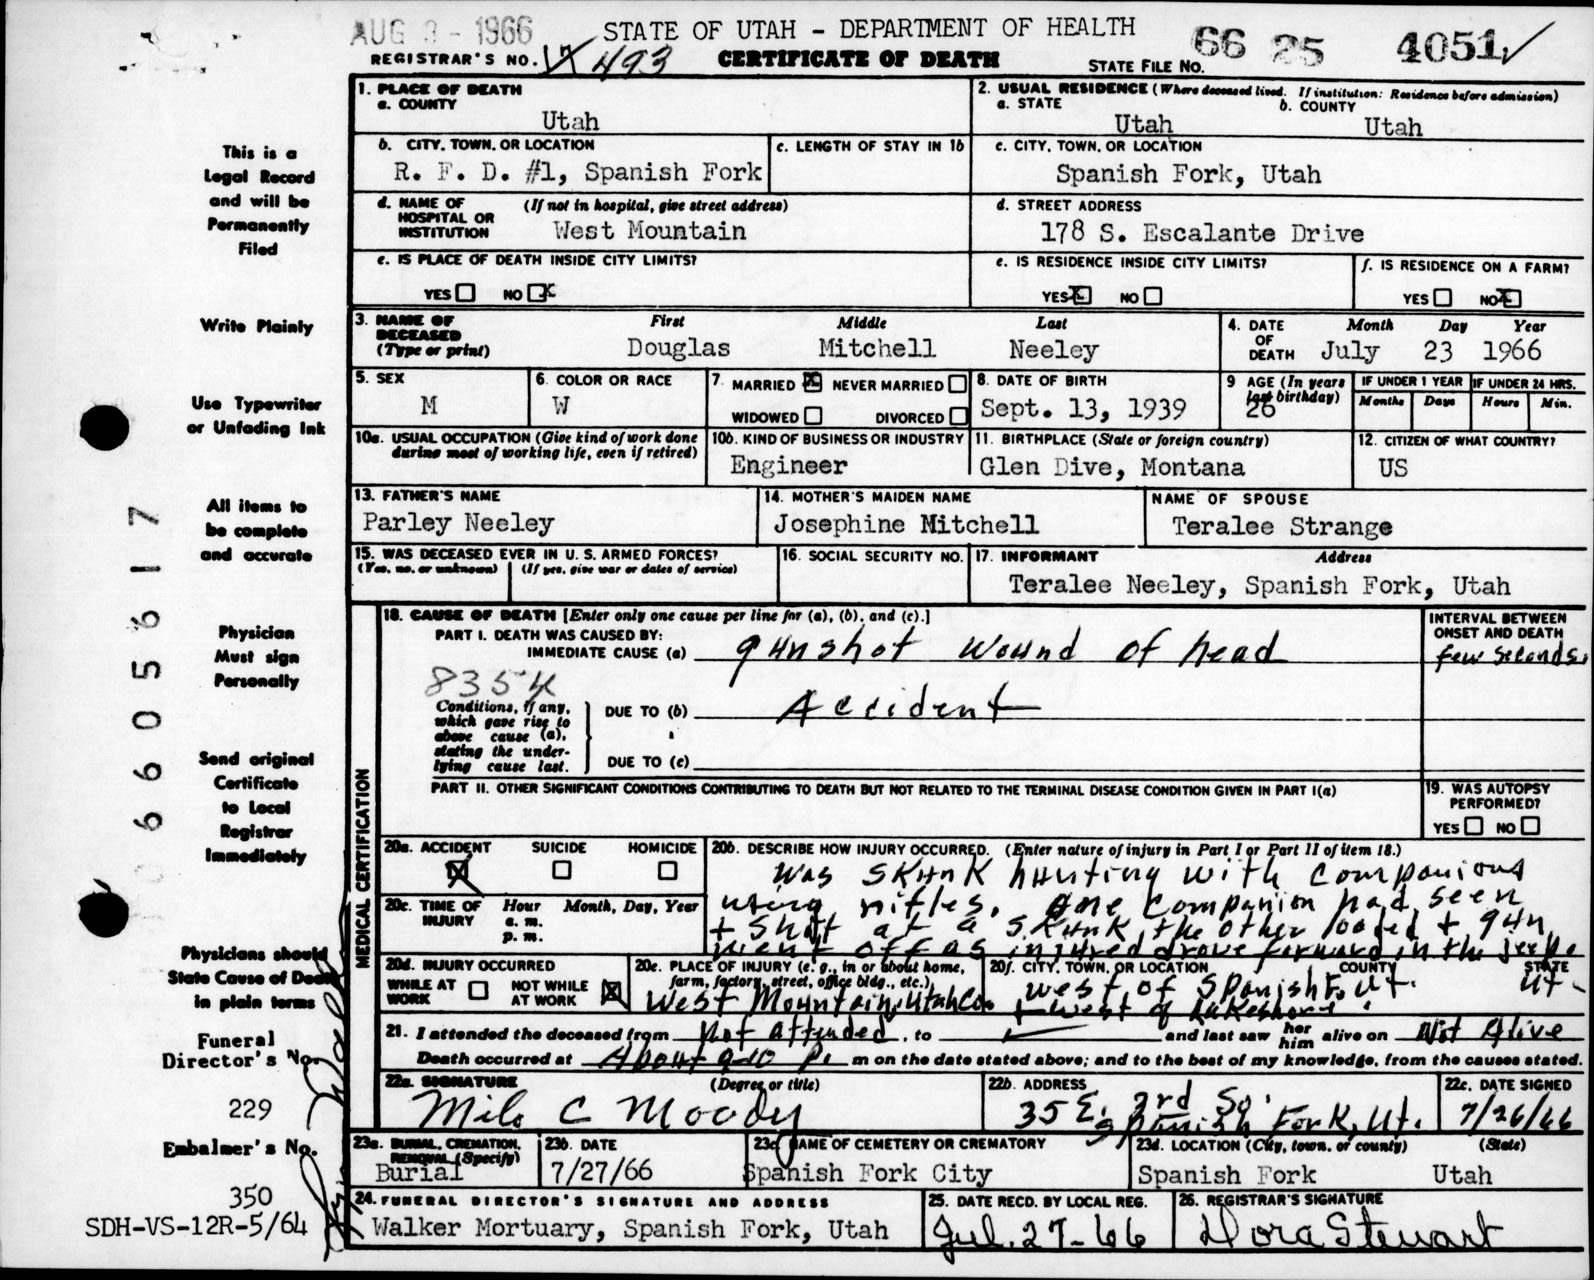 AUG 3 - 1966
STATE OF UTAH - DEPARTMENT OF HEALTH
66 25 4051
REGISTRAR'S NO. 493
CERTIFICATE OF DEATH
STATE FILE NO.
1. PLACE OF DEATH
a. COUNTY
Utah
2. USUAL RESIDENCE (Where deceased lived. If institution: Residence before admission)
a. STATE
Utah
b. COUNTY
Utah
b. CITY, TOWN, OR LOCATION
R. F. D. #1, Spanish Fork
c. LENGTH OF STAY IN 1b
c. CITY, TOWN, OR LOCATION
Spanish Fork, Utah
d. NAME OF HOSPITAL OR INSTITUTION
(If not in hospital, give street address)
West Mountain
d. STREET ADDRESS
178 S. Escalante Drive
e. IS PLACE OF DEATH INSIDE CITY LIMITS?
YES NO X
e. IS RESIDENCE INSIDE CITY LIMITS?
YES X NO
f. IS RESIDENCE ON A FARM?
YES NO X
3. NAME OF DECEASED (Type or print)
First Middle Last
Douglas Mitchell Neeley
4. DATE OF DEATH
Month Day Year
July 23 1966
5. SEX
M
6. COLOR OR RACE
W
7. MARRIED X NEVER MARRIED
WIDOWED DIVORCED
8. DATE OF BIRTH
Sept. 13, 1939
9 AGE (In years last birthday)
26
IF UNDER 1 YEAR
Months Days
IF UNDER 24 HRS.
Hours Min.
10a. USUAL OCCUPATION (Give kind of work done during most of working life, even if retired)
10b. KIND OF BUSINESS OR INDUSTRY
Engineer
11. BIRTHPLACE (State or foreign country)
Glen Dive, Montana
12. CITIZEN OF WHAT COUNTRY?
US
13. FATHER'S NAME
Parley Neeley
14. MOTHER'S MAIDEN NAME
Josephine Mitchell
NAME OF SPOUSE
Teralee Strange
15. WAS DECEASED EVER IN U. S. ARMED FORCES?
(Yes, no, or unknown) (If yes, give war or dates of service)
16. SOCIAL SECURITY NO.
17. INFORMANT Address
Teralee Neeley, Spanish Fork, Utah
MEDICAL CERTIFICATION
18. CAUSE OF DEATH [Enter only one cause per line for (a), (b), and (c).]
PART I. DEATH WAS CAUSED BY:
IMMEDIATE CAUSE (a) gunshot wound of head
INTERVAL BETWEEN ONSET AND DEATH
few seconds.
Conditions, if any, which gave rise to above cause (a), stating the underlying cause last.
DUE TO (b) Accident
DUE TO (c)
PART II. OTHER SIGNIFICANT CONDITIONS CONTRIBUTING TO DEATH BUT NOT RELATED TO THE TERMINAL DISEASE CONDITION GIVEN IN PART I(a)
19. WAS AUTOPSY PERFORMED?
YES NO
20a. ACCIDENT SUICIDE HOMICIDE
X
20b. DESCRIBE HOW INJURY OCCURRED. (Enter nature of injury in Part I or Part II of item 18.)
Was skunk hunting with companions
using rifles. One companion had seen
+ shot at a skunk, the other loaded + gun
went off as injured drove forward in the jeep.
20c. TIME OF INJURY
Hour Month, Day, Year
a. m.
p. m.
20d. INJURY OCCURRED
WHILE AT WORK NOT WHILE AT WORK X
20e. PLACE OF INJURY (e. g., in or about home, farm, factory, street, office bldg., etc.)
West Mountain, Utah Co.
20f. CITY, TOWN, OR LOCATION COUNTY STATE
west of Spanish F. Ut. Ut.
+ west of Lakeshore.
21. I attended the deceased from Not attended, to and last saw her him alive on Not Alive
Death occurred at About 9-10 P. m on the date stated above; and to the best of my knowledge, from the causes stated.
22a. SIGNATURE (Degree or title)
Milo C Moody
22b. ADDRESS
35 E. 3rd So.
Spanish Fork, Ut.
22c. DATE SIGNED
7/26/66
23a. BURIAL, CREMATION, REMOVAL (Specify)
Burial
23b. DATE
7/27/66
23c. NAME OF CEMETERY OR CREMATORY
Spanish Fork City
23d. LOCATION (City, town, or county) (State)
Spanish Fork Utah
24. FUNERAL DIRECTOR'S SIGNATURE AND ADDRESS
Walker Mortuary, Spanish Fork, Utah
25. DATE RECD. BY LOCAL REG.
Jul. 27-66
26. REGISTRAR'S SIGNATURE
Dora Stewart
This is a
Legal Record
and will be
Permanently
Filed
Write Plainly
Use Typewriter
or Unfading Ink
All items to
be complete
and accurate
Physician
Must sign
Personally
Send original
Certificate
to Local
Registrar
Immediately
Physicians should
State Cause of Death
in plain terms
Funeral
Director's No.
229
Embalmer's No.
350
SDH-VS-12R-5/64
06605617